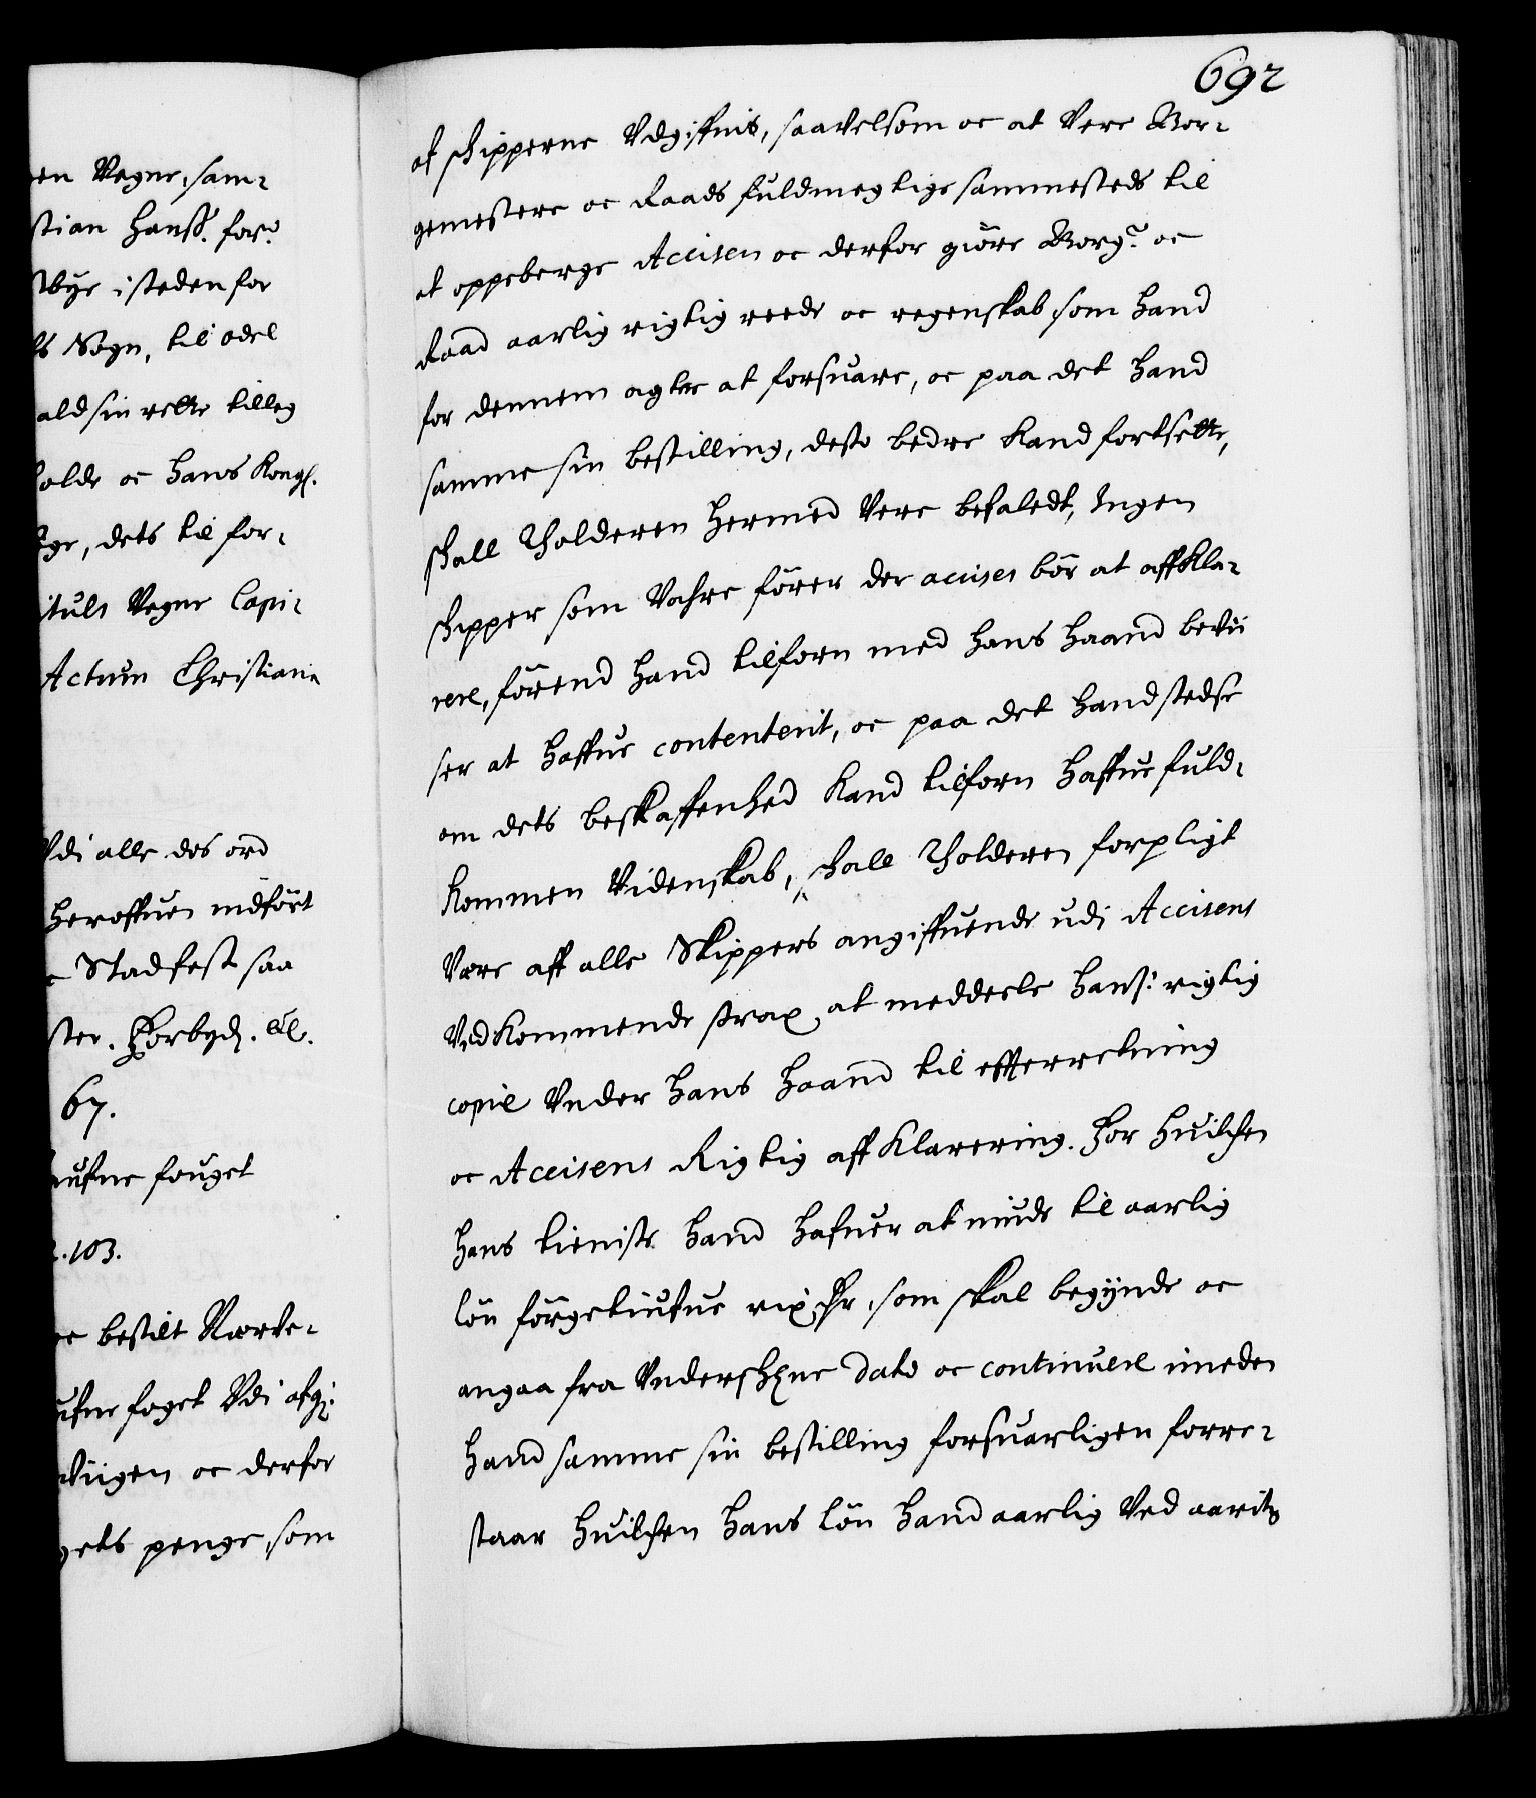 en Vegne, sam-
stian Hanss. for:
bye i steden for
ts Sogn, til odel
ald sin rette tilleg
olde oc hans Kongl.
ge, dets til for-
ituls Vegne Capi-
Actum Christiania
Vdi alle des ord
heroffuen indfört
Stadfest saa
ster. Forbyd. etc.
67.
fougt
103.
bestilt Norte-
foget Vdi
viigen oc derfor
gets penge, som
692
af schipperne Vdgiffuis, saavelsom oc at Vere Bor-
gemestere oc Raads fuldmegtige sammesteds til
at oppeberge Accisen oc derfor giöre Borg: oc
Raad aarlig rigtig reede oc regenskab, som hand
for dennem agter at forsuare, oc paa det hand
samme sin bestilling, desto bedre kand fortsette,
schall Tholderen hermed Vere befaledt, Ingen
schipper som Vahre förer der accises bör at affkla-
rere, förend hand tilforn med hans haand bevii
ser at haffue contenterit, oc paa det hand stedse
om dets beskaffenhed kand tilforn haffue fuld-
kommen Videnskab, schall Tholderen forpligt
Være aff alle Skippers angiffuende udi Accisens
Vedkommende strax at meddeele hans: rigtig
copie Vnder hans haand til efterretning
oc Accisens Rigtig affklarering. For huilchen
hans tieniste hand hafuer at niude til aarlig
lön förgetiufue rix dlr, som skal begÿnde oc
angaa fra Vnderschrefne dato oc continuere imeden
hand samme sin bestilling forsuarligen forre-
staar huilchen hans lön hand aarlig Ved aarits